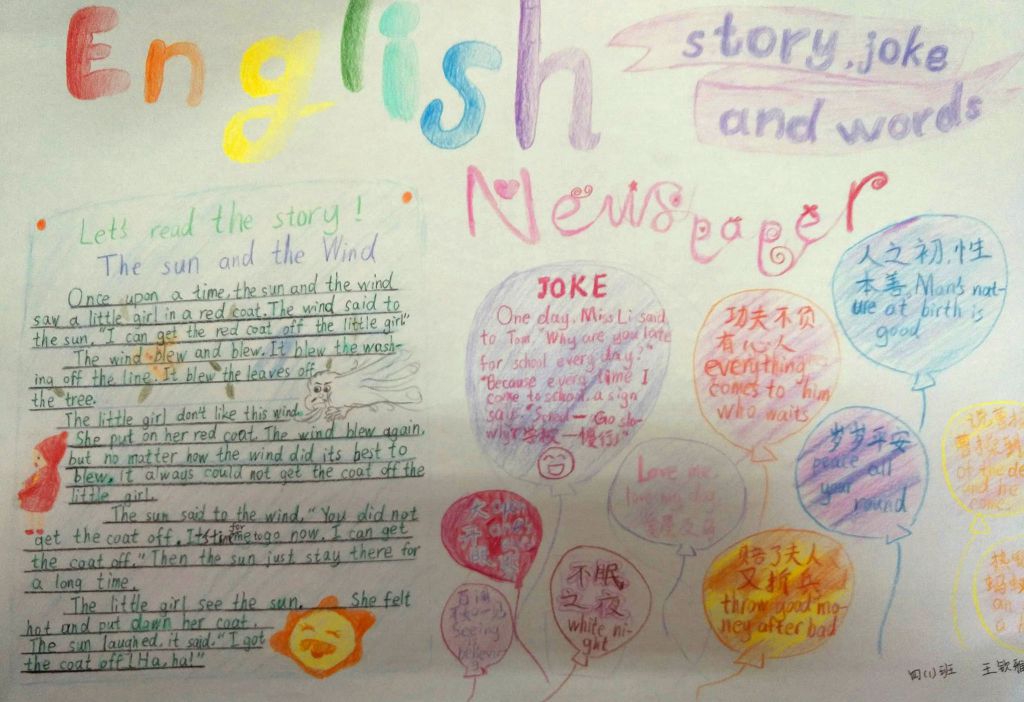 English
story, joke
and words
Newspaper
Let's read the story!
The sun and the Wind
Once upon a time, the sun and the wind
saw a little girl in a red coat. The wind said to
the sun, "I can get the red coat off the little girl"
The wind blew and blew. It blew the wash-
ing off the line. It blew the leaves off
the tree.
The little girl don't like this wind.
She put on her red coat. The wind blew again,
but no matter how the wind did its best to
blew, it always could not get the coat off the
little girl.
The sun said to the wind, "You did not
get the coat off. It's time for me to go now. I can get
the coat off." Then the sun just stay there for
a long time.
The little girl see the sun. She felt
hot and put dawn her coat.
The sun laughed, it said. "I got
the coat off! Ha, ha!"
JOKE
One day, Miss Li said
to Tom. "Why are you late
for school every day?"
"Because every time I
come to school, a sign
say: "School — Go slo-
wly! 学校一慢行!"
功夫不负
有心人
everything
comes to him
who waits
人之初,性
本善, Man's nat-
ure at birth is
good
Love me,
love my dog
岁岁平安
peace all
year
round
不眠
之夜
white ni-
ght
百闻
不如一见
Seeing
is
believing
赔了夫人
又折兵
throw good mo-
ney after bad
说曹操
曹操到
of the de
and he
come.
an
四(1)班 王钦雅